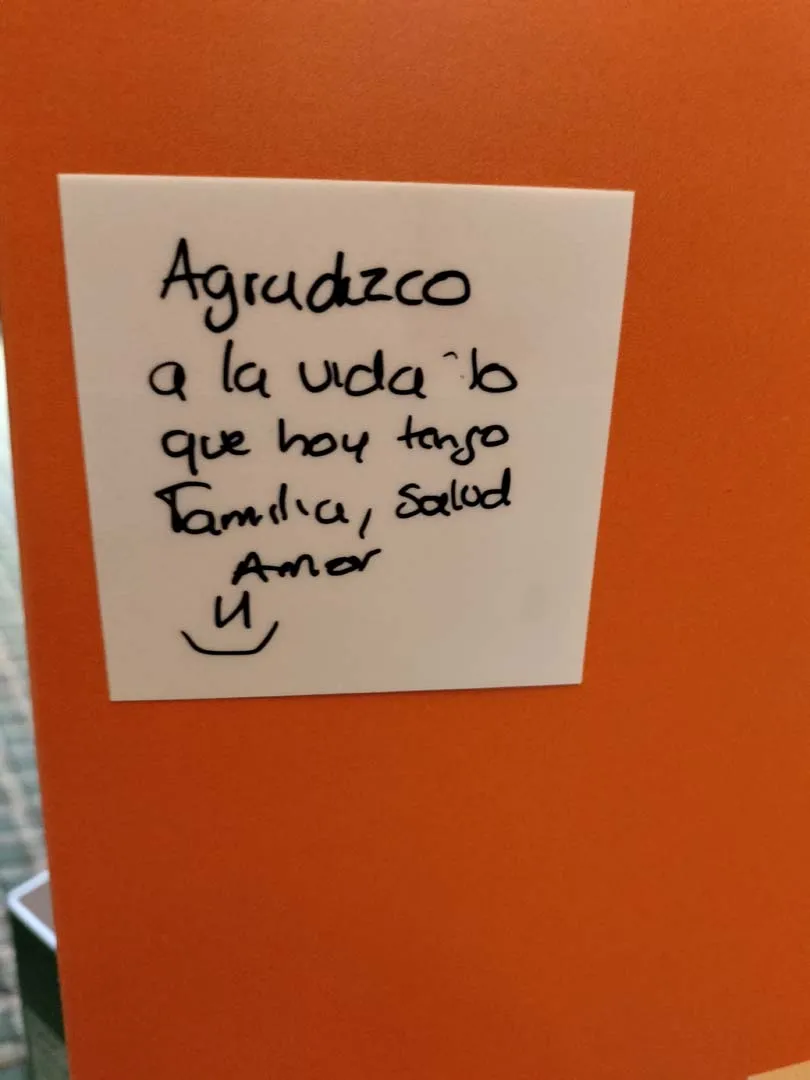 Agradezco
a la vida lo
que hoy tengo
Familia, Salud
Amor